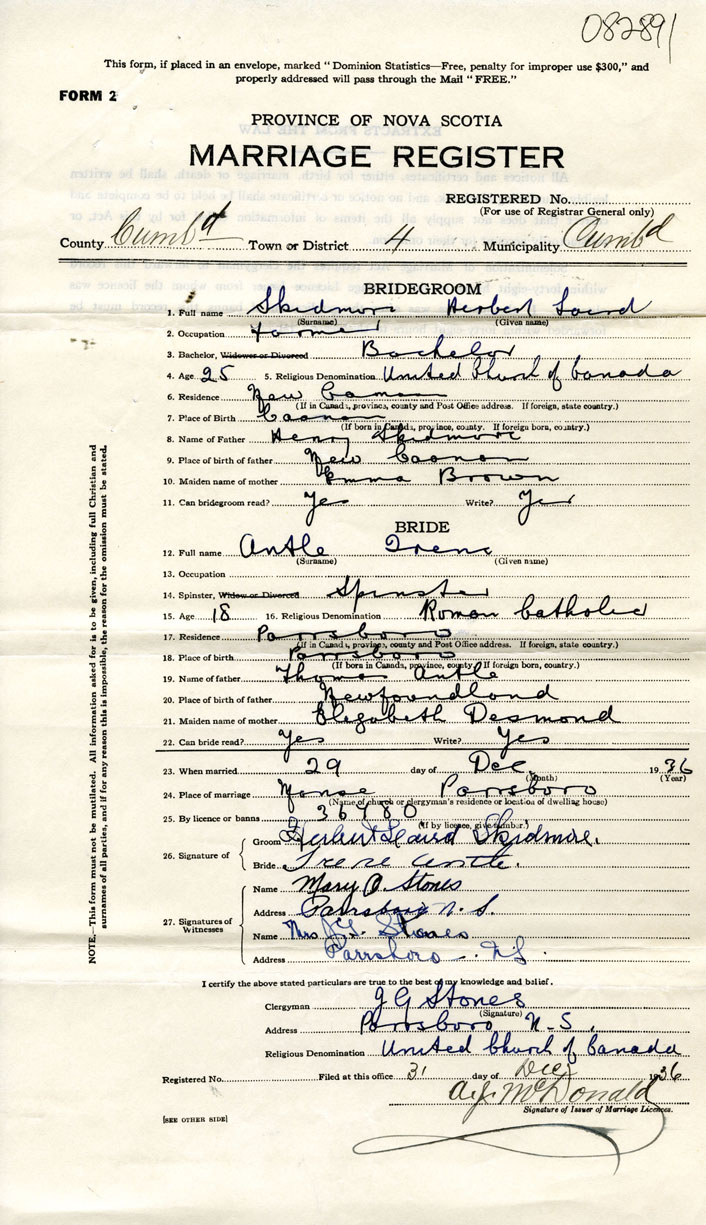 082891
This form, if placed in an envelope, marked "Dominion Statistics—Free, penalty for improper use $300," and
properly addressed will pass through the Mail "FREE."
FORM 2
PROVINCE OF NOVA SCOTIA
MARRIAGE REGISTER
REGISTERED No.
(For use of Registrar General only)
County Cumb'd Town or District 4 Municipality Cumb'd
BRIDEGROOM
1. Full name Skidmore Herbert Laird
(Surname) (Given name)
2. Occupation Farmer
3. Bachelor, Widower or Divorced Bachelor
4. Age 25 5. Religious Denomination United Church of Canada
6. Residence New Canaan
(If in Canada, province, county and Post Office address. If foreign, state country.)
7. Place of Birth Canaan
(If born in Canada, province, county. If foreign born, country.)
8. Name of Father Henry Skidmore
9. Place of birth of father New Canaan
10. Maiden name of mother Emma Brown
11. Can bridegroom read? Yes Write? Yes
BRIDE
12. Full name Antle Irene
(Surname) (Given name)
13. Occupation
14. Spinster, Widow or Divorced Spinster
15. Age 18 16. Religious Denomination Roman Catholic
17. Residence Parrsboro
(If in Canada, province, county and Post Office address. If foreign, state country.)
18. Place of birth Parrsboro
(If born in Canada, province, county. If foreign born, country.)
19. Name of father Thomas Antle
20. Place of birth of father Newfoundland
21. Maiden name of mother Elizabeth Desmond
22. Can bride read? Yes Write? Yes
23. When married 29 day of Dec. 1936
(Month) (Year)
24. Place of marriage Manse Parrsboro
(Name of church or clergyman's residence or location of dwelling house)
25. By licence or banns 36780
(If by licence, give number.)
26. Signature of
Groom Herbert Laird Skidmore.
Bride Irene Antle.
27. Signatures of Witnesses
Name Mary O. Stones
Address Parrsboro N. S.
Name Mrs J.G. Stones
Address Parrsboro N.S.
I certify the above stated particulars are true to the best of my knowledge and belief.
Clergyman J G Stones
(Signature)
Address Parrsboro N.S.
Religious Denomination United Church of Canada
Registered No. Filed at this office 31 day of Dec 1936
A.J. McDonald
Signature of Issuer of Marriage Licences.
[SEE OTHER SIDE]
NOTE.—This form must not be mutilated. All information asked for is to be given, including full Christian and
surnames of all parties, and if for any reason this is impossible, the reason for the omission must be stated.